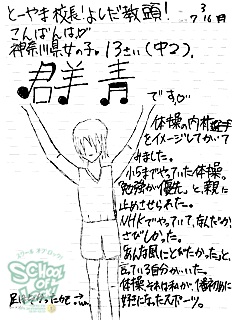 とーやま校長!よしだ教頭!
3/16 月
7
こんばんは♡
神奈川県女の子。13さい(中2)。
群青
です♡
体操の内村選手
をイメージしてかいて
みました。
小5までやっていた体操。
「勉強が優先」と、親に
止めさせられた。
NHKでやっていて、なんだか
さびしかった。
「あんな風にとびたかった」と、
言っている自分がいた。
体操、それは私が、1番初めに
好きになったスポーツ。
SCHOOL OF LOCK!